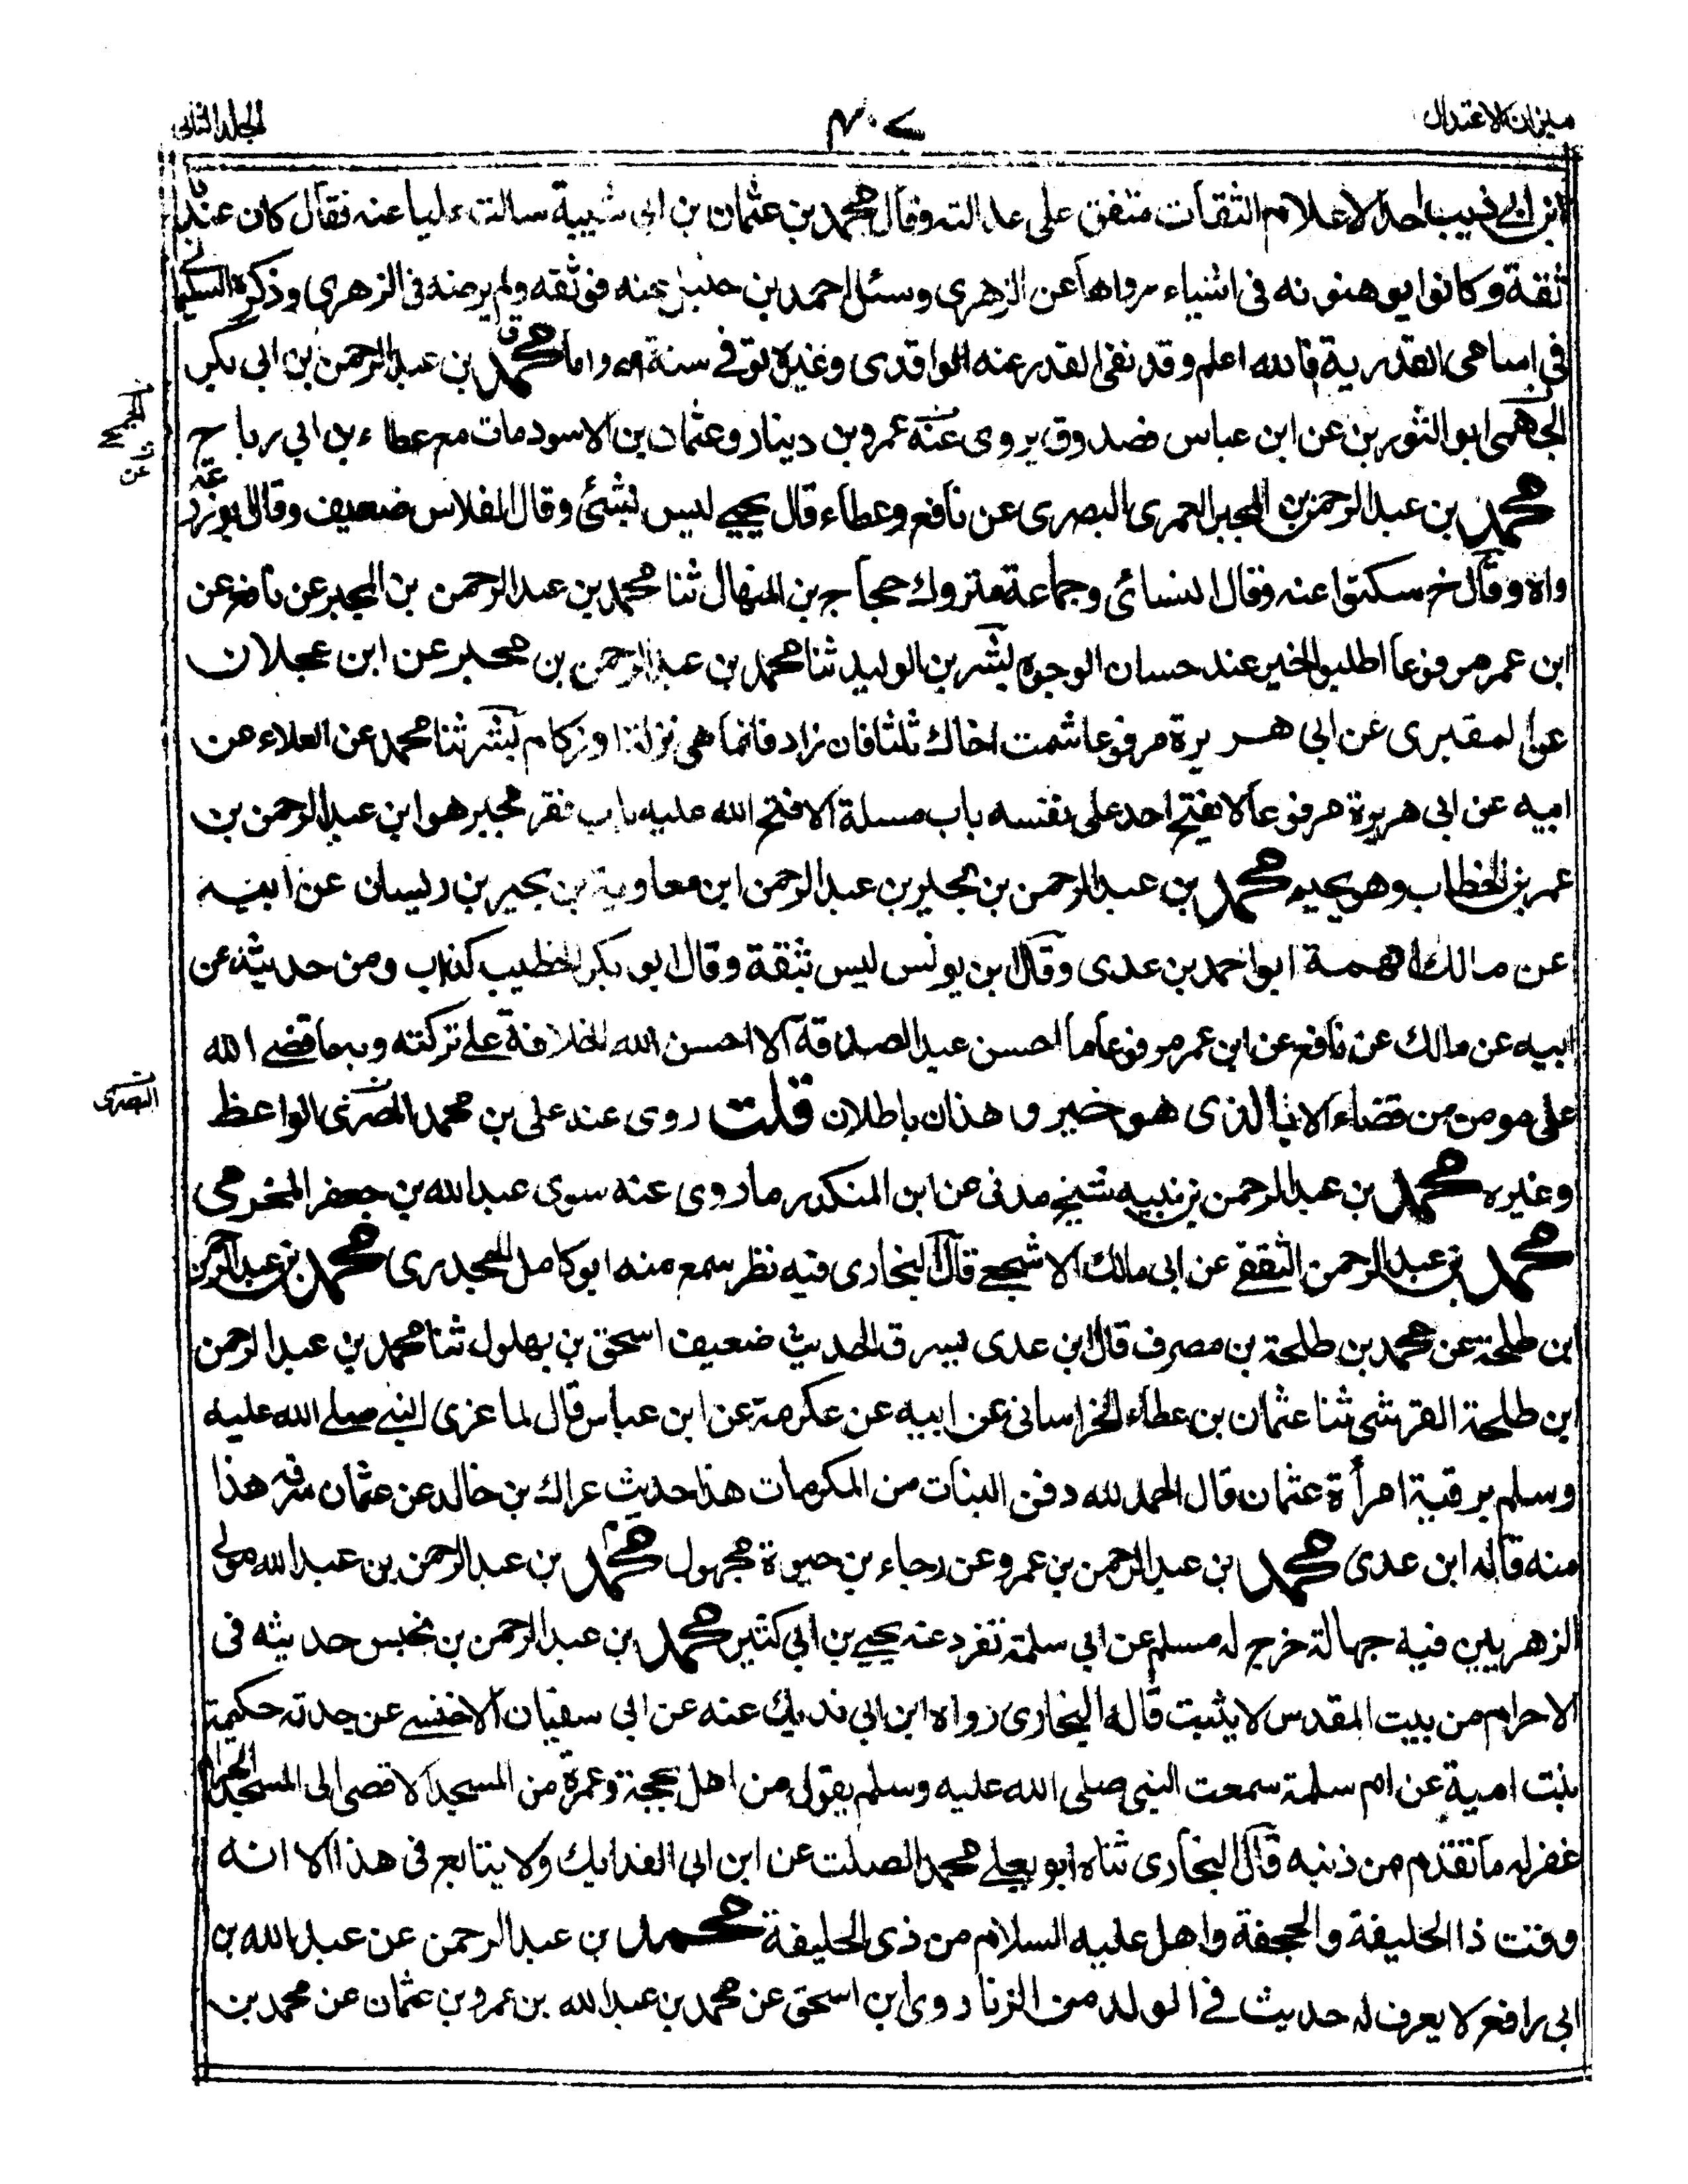 ميزان الاعتدال
٤٠٧
المجلد الثاني
ابن ابي ذيب احد الاعلام الثقات متفق على عدالته وقال محمد بن عثمان بن ابي شيبة سالت عليا عنه فقال كان عندنا
ثقة وكانوا يوهنونه في اشياء رواها عن الزهري وسئل احمد بن حنبل عنه فوثقه ولم يرضه في الزهري وذكره السليماني
في اسامي القدرية فالله اعلم وقد نفى القدر عنه الواقدي وغيره توفي سنة واما محمد بن عبد الرحمن بن ابي بكر
الجمحي ابو الثورين عن ابن عباس فصدوق يروي عنه عمرو بن دينار وعثمان بن الاسود مات مع عطاء بن ابي رباح
محمد بن عبد الرحمن بن المجبر العمري البصري عن نافع وعطاء قال يحيى ليس بشئ وقال الفلاس ضعيف وقال ابو زرعة
واه وقال خ سكتوا عنه وقال النسائي وجماعة متروك حجاج بن المنهال ثنا محمد بن عبد الرحمن بن المجبر عن نافع عن
ابن عمر مرفوعا اطلبوا الخير عند حسان الوجوه بشر بن الوليد ثنا محمد بن عبد الرحمن بن مجبر عن ابن عجلان
عن المقبري عن ابي هريرة مرفوعا شمت اخاك ثلثا فان زاد فانما هي نزلة او زكام بشر ثنا محمد عن العلاء عن
ابيه عن ابي هريرة مرفوعا لا يفتح احد على نفسه باب مسلة الا فتح الله عليه باب فقر مجبر هو ابن عبد الرحمن بن
عمر بن الخطاب وهو يحيى محمد بن عبد الرحمن بن بحير بن عبد الرحمن ابن معاوية بن بحير بن ريسان عن ابيه
عن مالك اتهمه ابو احمد بن عدي وقال ابن يونس ليس بثقة وقال ابو بكر الخطيب كذاب ومن حديثه عن
ابيه عن مالك عن نافع عن ابن عمر مرفوعا ما احسن عبد الصدقة الا احسن الله الخلافة على تركته وبه ما قضى الله
على مومن من قضاء الا بالذي هو خير وهذان باطلان قلت روى عنه علي بن محمد المصري الواعظ
وغيره محمد بن عبد الرحمن بن نبيه شيخ مدني عن ابن المنكدر ما روى عنه سوى عبد الله بن جعفر المخرمي
محمد بن عبد الرحمن الثقفي عن ابي مالك الاشجعي قال البخاري فيه نظر سمع منه ابو كامل الجحدري محمد بن عبد الرحمن
ابن طلحة عن محمد بن طلحة بن مصرف قال ابن عدي يسرق الحديث ضعيف اسحق بن بهلول ثنا محمد بن عبد الرحمن
ابن طلحة القرشي ثنا عثمان بن عطاء الخراساني عن ابيه عن عكرمة عن ابن عباس قال لما عزي النبي صلى الله عليه
وسلم برقية امرأة عثمان قال الحمد لله دفن البنات من المكرمات هذا حديث عراك بن خالد عن عثمان سرقه هذا
منه قاله ابن عدي محمد بن عبد الرحمن بن عمرو عن رجاء بن حيوة مجهول محمد بن عبد الرحمن بن عبد الله مولى
الزهريين فيه جهالة خرج له مسلم عن ابي سلمة تفرد عنه يحيى بن ابي كثير محمد بن عبد الرحمن بن يحنس حديثه في
الاحرام من بيت المقدس لا يثبت قاله البخاري رواه ابن ابي فديك عنه عن ابي سفيان الاخنسي عن جدته حكيمة
بنت امية عن ام سلمة سمعت النبي صلى الله عليه وسلم يقول من اهل بحجة وعمرة من المسجد الاقصى الى المسجد الحرام
غفر له ما تقدم من ذنبه قال البخاري ثناه ابو يعلى محمد الصلت عن ابن ابي الفديك ولا يتابع في هذا الا انه
وقت ذا الحليفة والجحفة واهل عليه السلام من ذي الحليفة محمد بن عبد الرحمن عن عبد الله بن
ابي رافع لا يعرف له حديث في الولد من الزنا روى ابن اسحق عن محمد بن عبد الله بن عمرو بن عثمان عن محمد بن
الجمحي
البصري